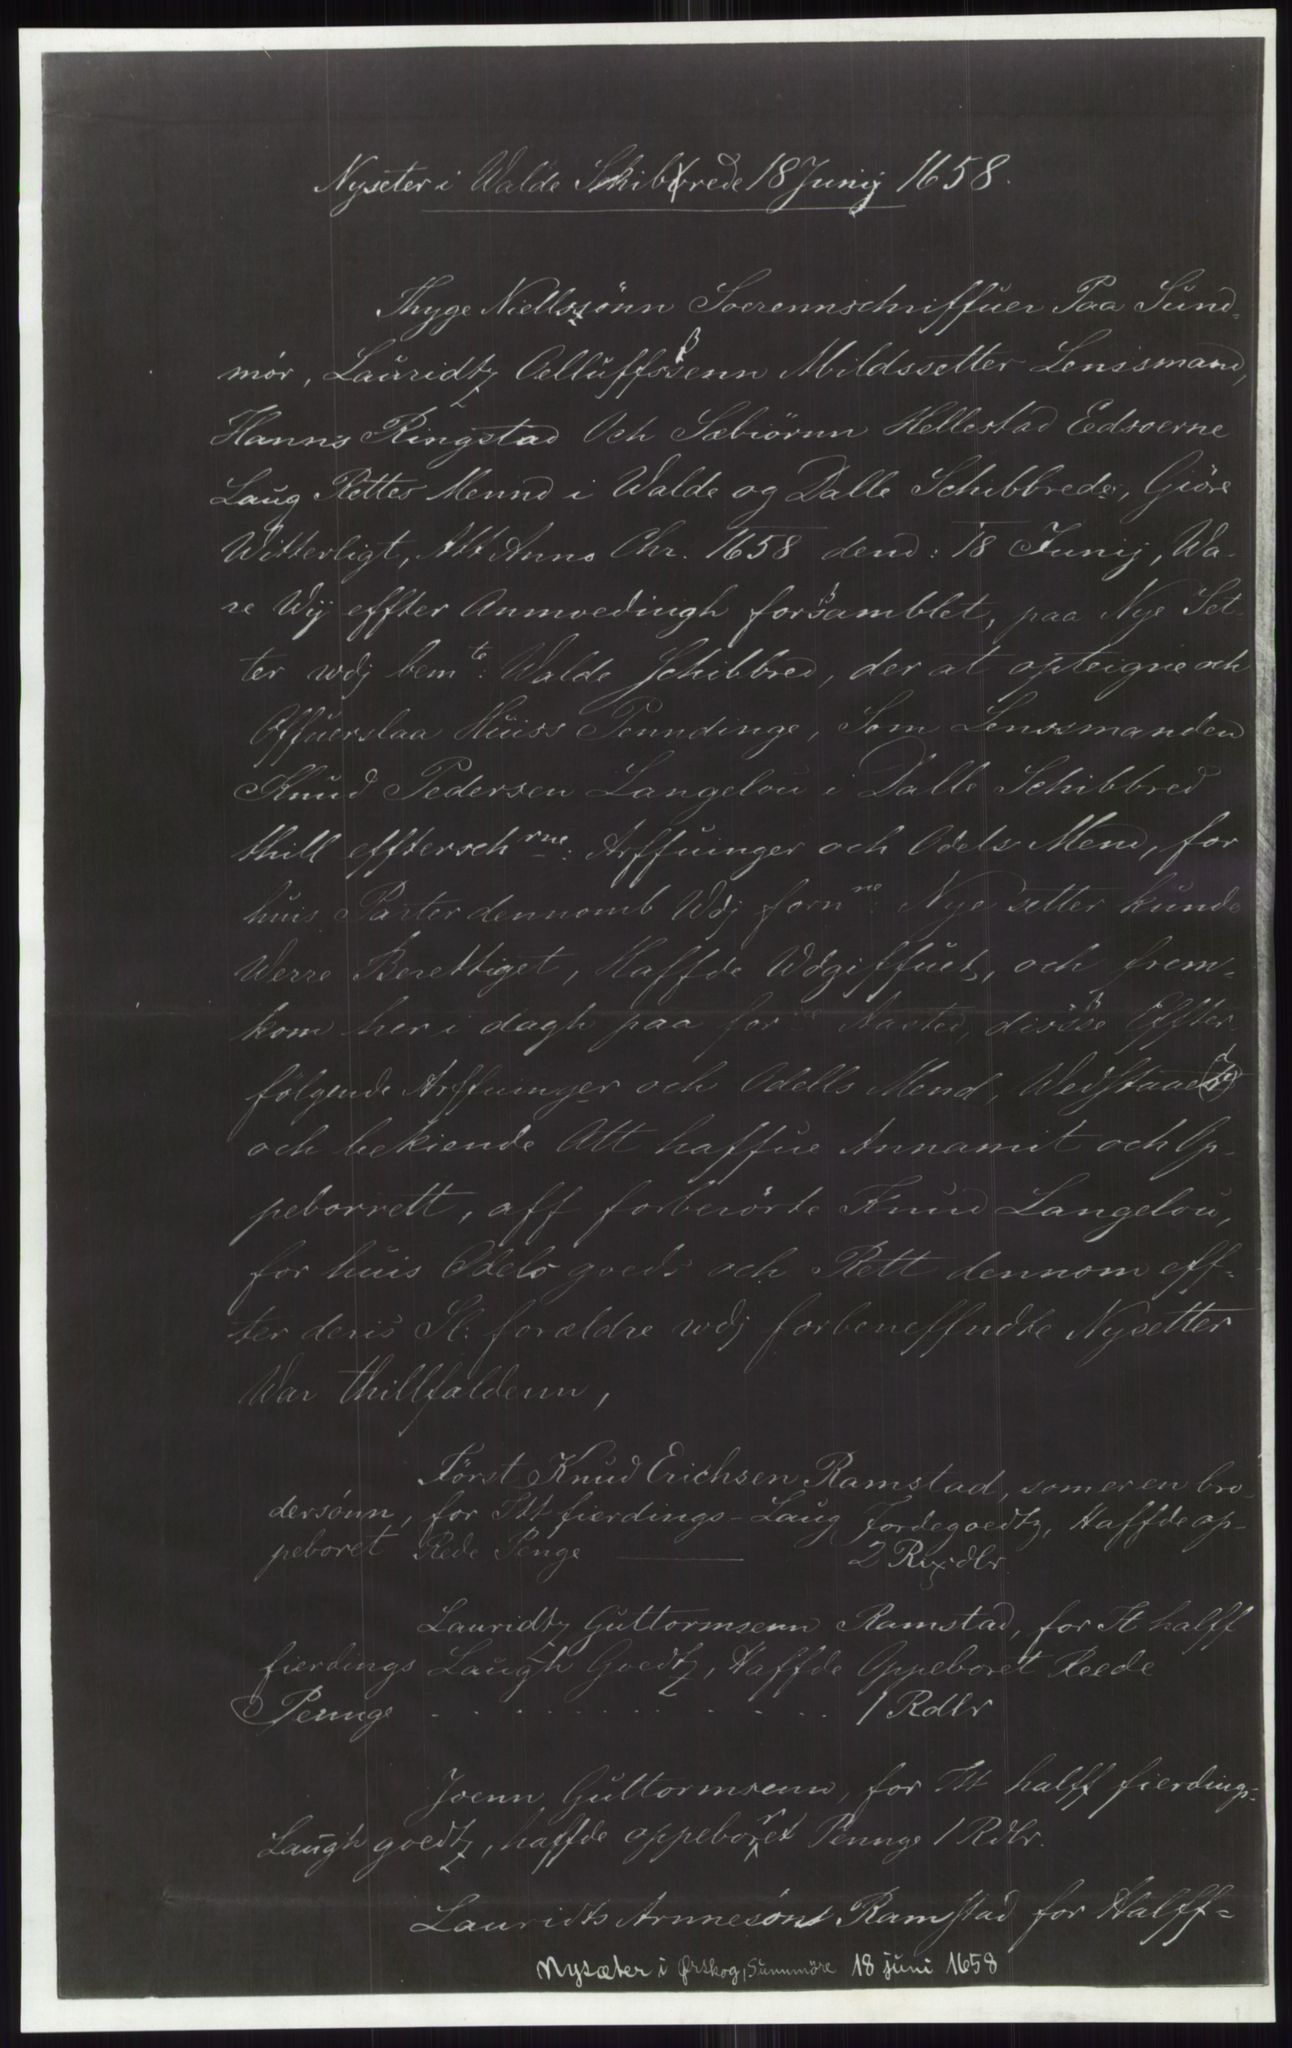 Nyseter i Walde Skibbrede 18 Junij 1658.
Thyge Niellssønn Soerennschriffuer Paa Sünd-
mør, Lauridtz Oellüffssenn Mildssetter Lenssmand,
Hanns Ringstad Och Sæbiörnn Hellestad Edsoerne
Laug Rettes Mennd i Walde og Dalle Schibbrede, Giöre
Witterligt, Att Anno Chr. 1658 dend: 18 Junij, Wa-
re Wij effter Anmoedingh forsamblet, paa Nye Set-
ter wdj bemte: Walde Schibbred, der at opteigne och
Offuerslaa Huiss Penndinge, Som Lenssmanden
Knud Pedersen Langelou i Dalle Schibbred
thill efftersch rne: Arffuinger och Odels Mend, for
huis Parter dennomb Wdj forn ne: Nye setter kunde
Werre Berettiget, Haffde Udgiffuet, och frem-
kom her i dagh paa for ne Aasted, disse Effter
følgende Arffuinger och Odells Mend, Wedstaaed
och bekiende Att haffue Annamit och Op-
peborrett, aff forberörte Knud Langelou,
for huis Odels goeds och Rett dennom eff-
ter deris Sl: forældre wdj forbeneffndte Nysetter
War thillfaldenn,
Först Knud Erichsen Ramstad, som er en bro-
dersønn, for Itt fierdings-Laug Jordegoedtz, Haffde op-
peboret Rede Penge — 2 Rixdlr
Lauridtz Guttormsenn Ramstad, for It halff
fierdings Laugh Goedtz, Haffde Oppeboret Reede
Pennge . . . . . . . . . . . . . . 1 Rdlr
Joenn Guttormsenn, for Itt halff fierdings-
Laugh goedtz, haffde oppeborret Pennge 1 Rdlr.
Lauridts Arnnesönn Ramstad for Halff=
Nysæter i Ørskog, Sunnmöre 18 juni 1658